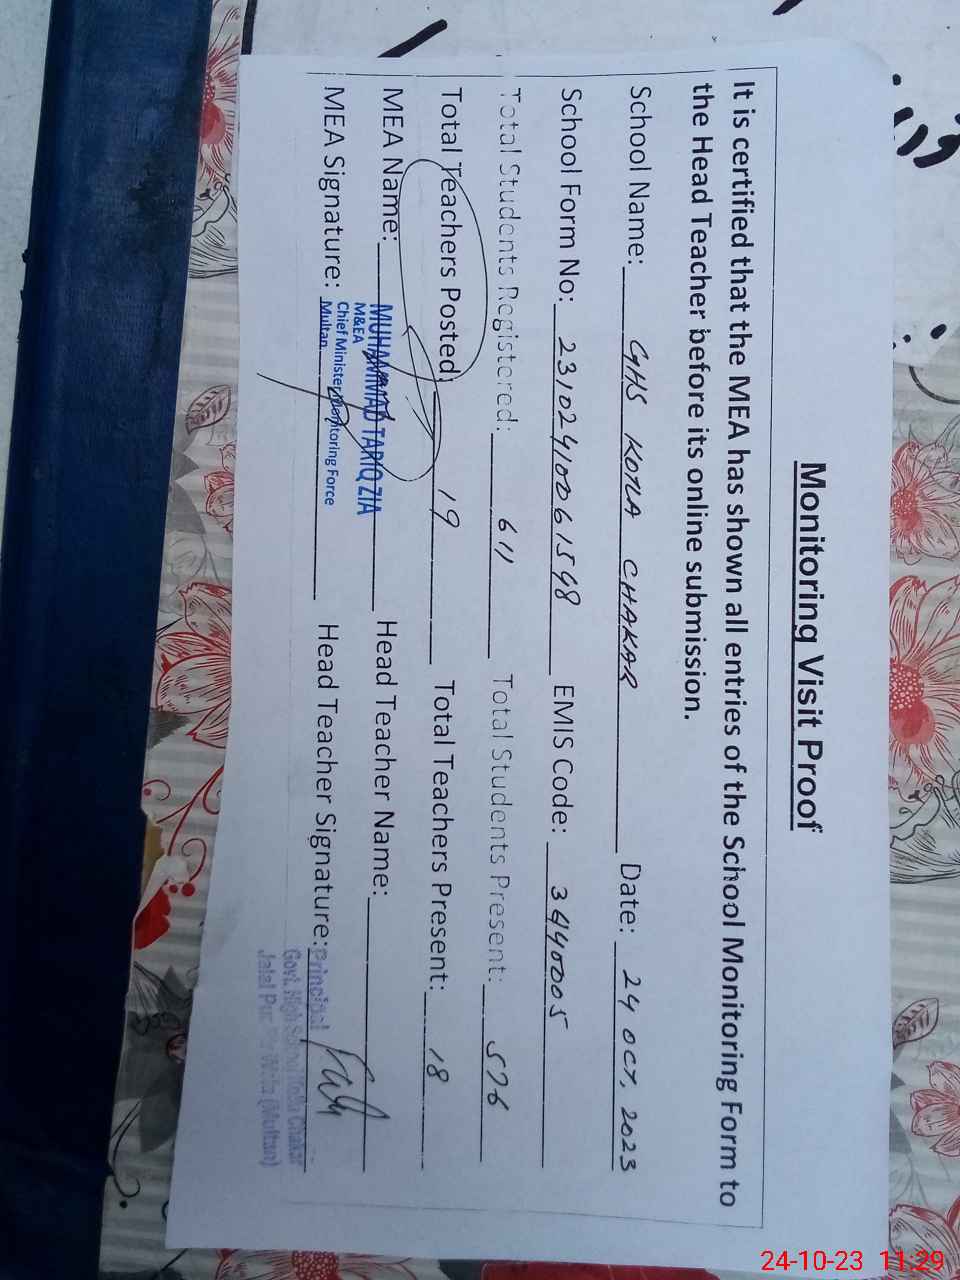 Monitoring Visit Proof
It is certified that the MEA has shown all entries of the School Monitoring Form to
the Head Teacher before its online submission.
School Name: GHS KOTLA CHAKAR Date: 24 OCT, 2023
School Form No: 23102410061598 EMIS Code: 3440005
Total Students Registered: 611 Total Students Present: 576
Total Teachers Posted: 19 Total Teachers Present: 18
MEA Name: MUHAMMAD TARIQ ZIA Head Teacher Name:
M&EA
Chief Minister Monitoring Force
MEA Signature: Multan Head Teacher Signature: Principal
Govt. High School Kotla Chakar
Jalal Pur Pir Wala (Multan)
24-10-23 11:29